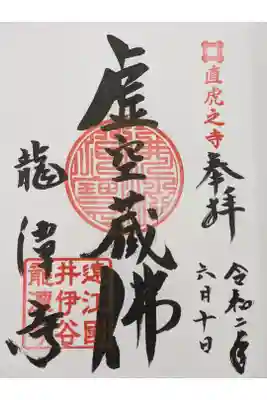 直虎之寺
奉拝
令和二年
六月十日
虚空蔵佛
龍潭寺
遠江國
井伊谷
龍潭寺